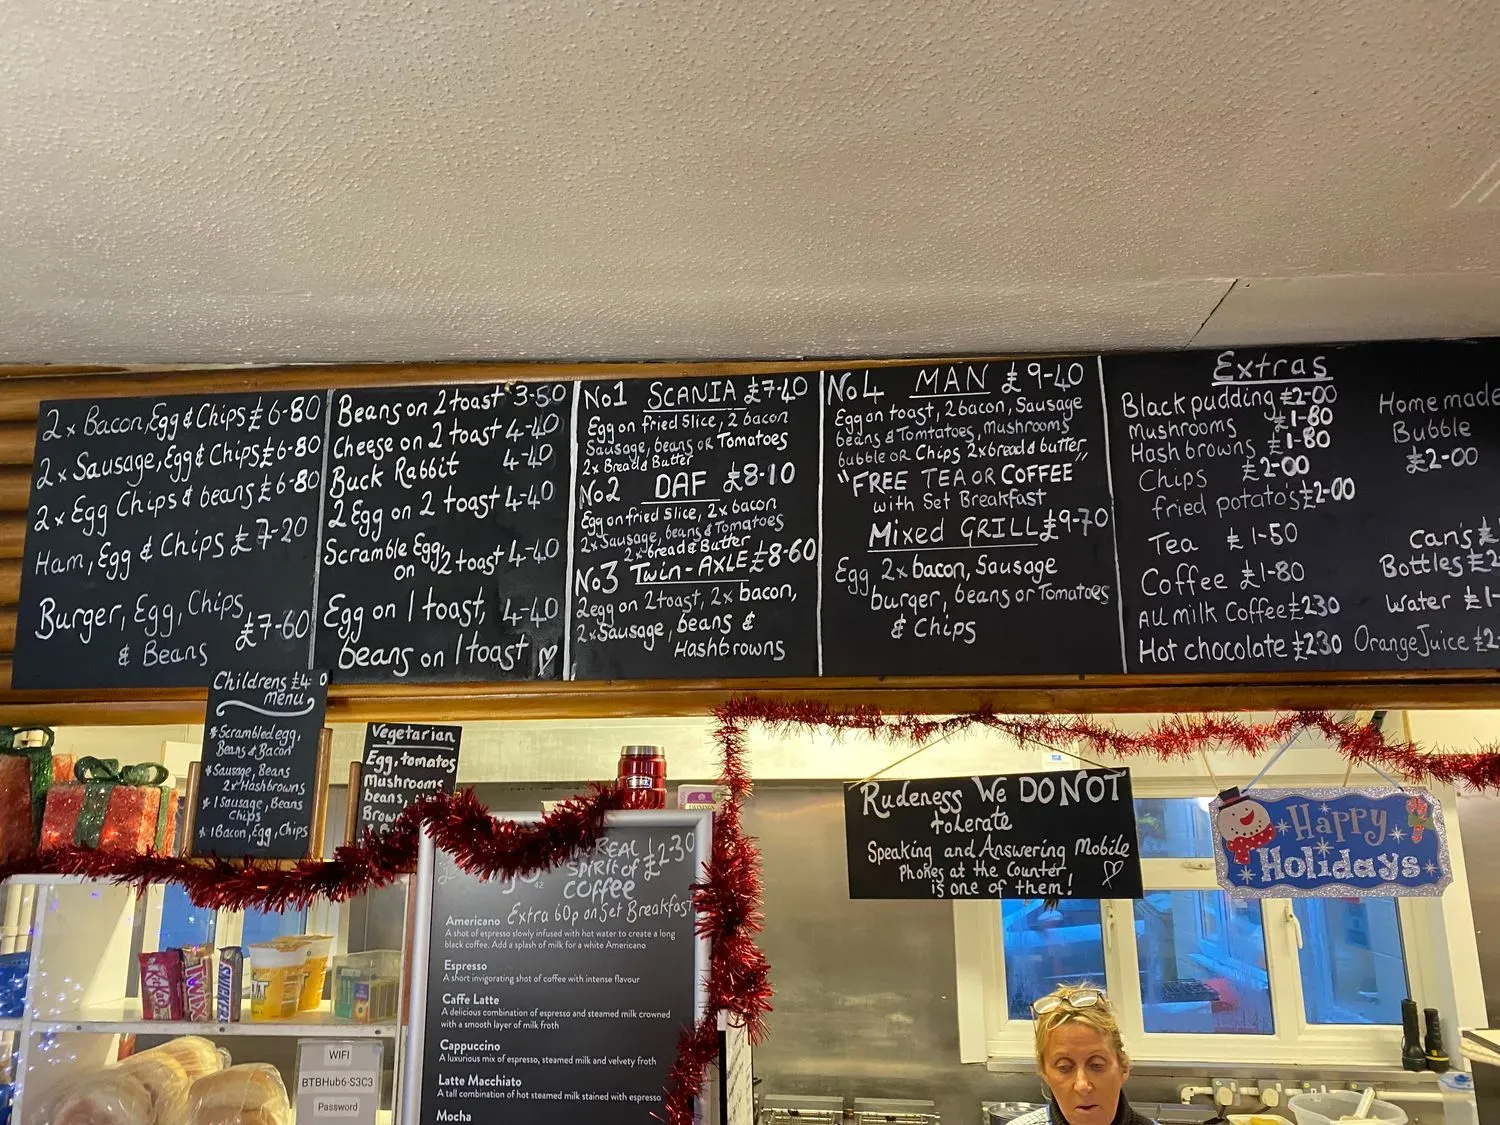 2 x Bacon, Egg & Chips £6-80
2 x Sausage, Egg & Chips £6-80
2 x Egg Chips & beans £6-80
Ham, Egg & Chips £7-20
Burger, Egg, Chips
& Beans £7-60
Beans on 2 toast 3-50
Cheese on 2 toast 4-40
Buck Rabbit 4-40
2 Egg on 2 toast 4-40
Scramble Egg
on 2 toast 4-40
Egg on 1 toast, 4-40
beans on 1 toast
No1 SCANIA £7-40
Egg on fried Slice, 2 bacon
Sausage, beans OR Tomatoes
2x Bread & Butter
No2 DAF £8-10
Egg on fried Slice, 2x bacon
2x Sausage, beans & Tomatoes
2x bread & Butter
No3 Twin-AXLE £8-60
2egg on 2toast, 2x bacon,
2x Sausage, beans &
Hashbrowns
No4 MAN £9-40
Egg on toast, 2bacon, Sausage
beans & Tomtatoes, Mushrooms
bubble OR Chips 2x bread & butter,
"FREE TEA OR COFFEE"
with Set Breakfast
Mixed GRILL £9-70
Egg 2x bacon, Sausage
burger, beans or Tomatoes
& Chips
Extras
Black pudding £2-00
Mushrooms £1-80
Hash browns £1-80
Chips £2-00
fried potato's £2-00
Tea £1-50
Coffee £1-80
All milk Coffee £2.30
Hot chocolate £2.30
Home made
Bubble
£2-00
Can's £
Bottles £2
Water £1-
Orange Juice £2
Childrens £4
menu
* Scrambled egg,
Beans & Bacon
* Sausage, Beans
2x Hashbrowns
* 1 Sausage, Beans
Chips
* 1 Bacon, Egg, Chips
Vegetarian
Egg, tomatos
Mushrooms
beans,
Brown
Rudeness We DO NOT
tolerate
Speaking and Answering Mobile
Phones at the Counter
is one of them!
Happy
Holidays
REAL £2-30
SPiRit of
COFFEE
Extra 60p on Set Breakfast
Americano
A shot of espresso slowly infused with hot water to create a long
black coffee. Add a splash of milk for a white Americano
Espresso
A short invigorating shot of coffee with intense flavour
Caffe Latte
A delicious combination of espresso and steamed milk crowned
with a smooth layer of milk froth
Cappuccino
A luxurious mix of espresso, steamed milk and velvety froth
Latte Macchiato
A tall combination of hot steamed milk stained with espresso
Mocha
KitKat
TWIX
SNICKERS
WIFI
BTBHub6-S3C3
Password